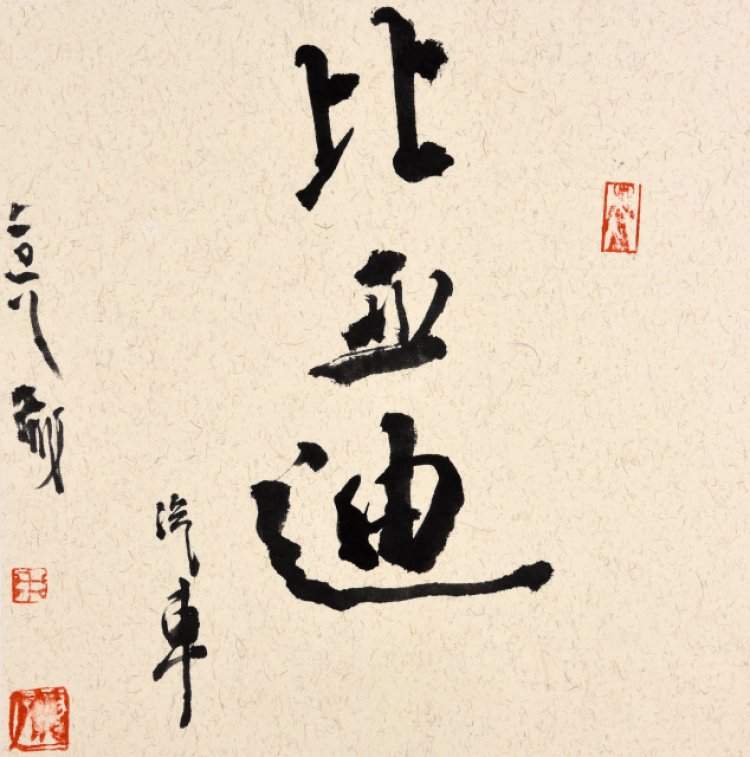 比亚迪
汽車
二〇一八